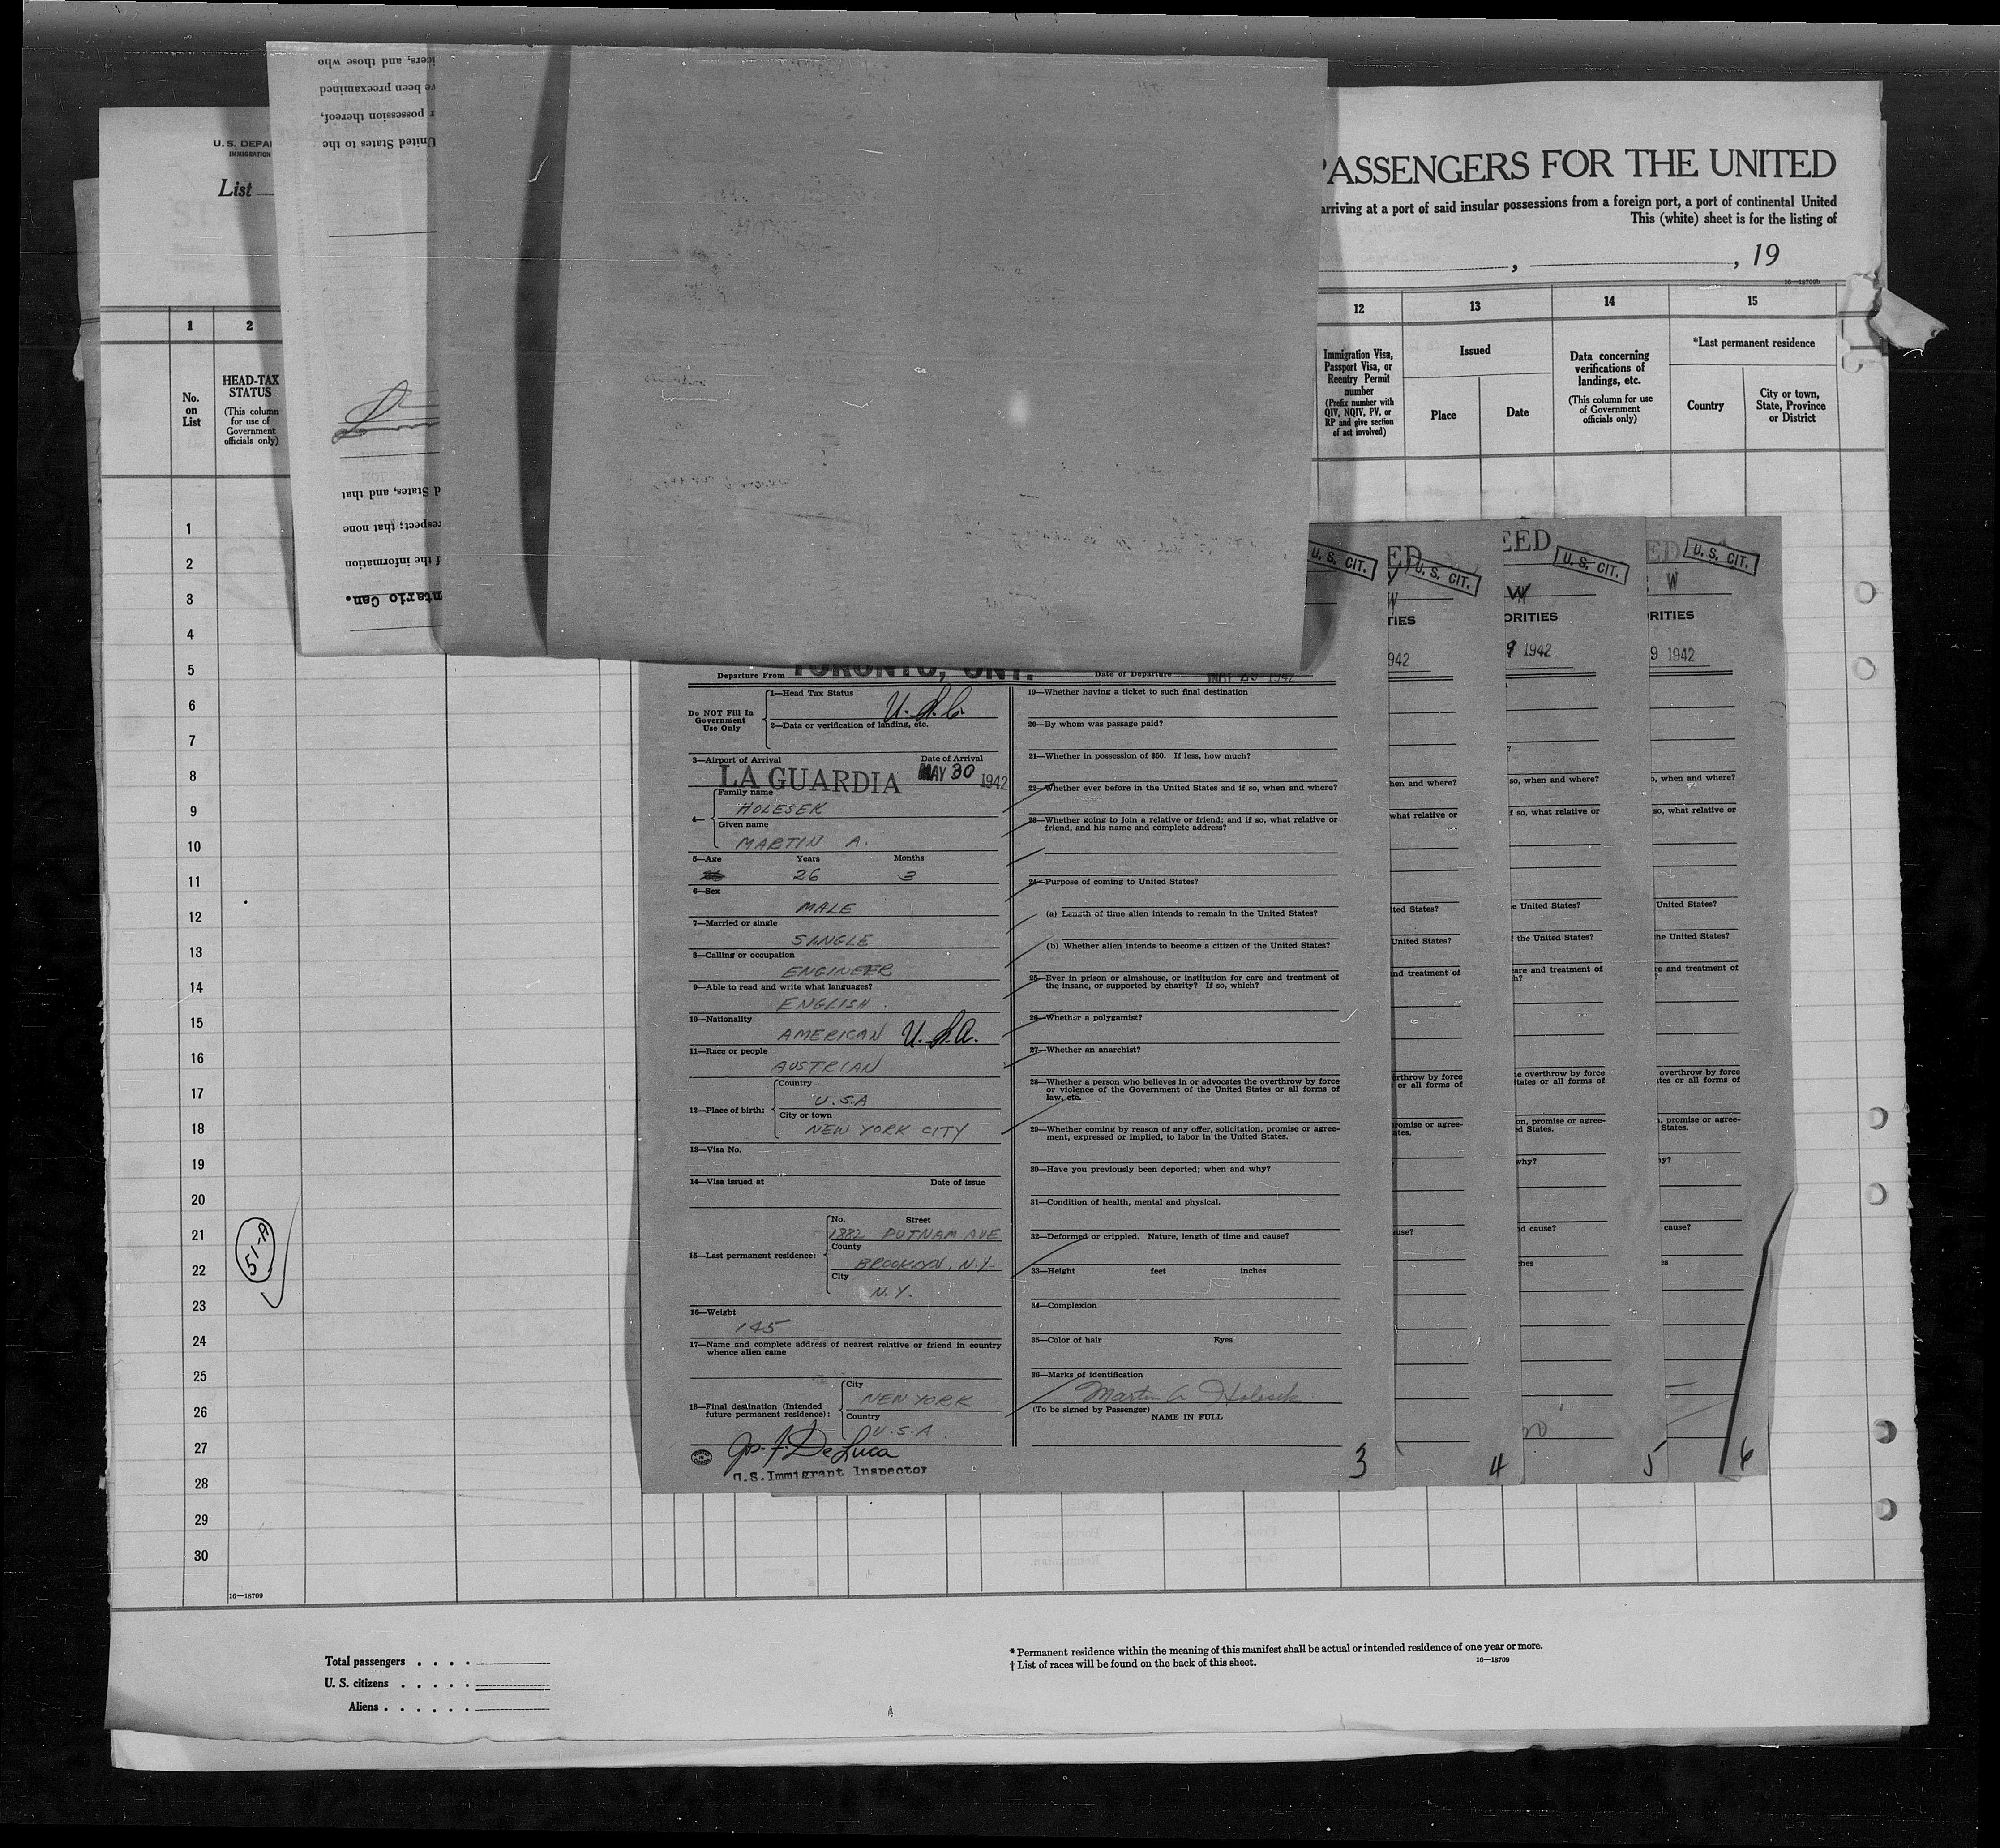 U. S. DEPA
IMMIGRATION
List
icers, and those who
ve been preexamined
r possession thereof,
United States to the
d States, and that
respect; that none
f the information
ntario Can.
PASSENGERS FOR THE UNITED
arriving at a port of said insular possessions from a foreign port, a port of continental United
This (white) sheet is for the listing of
, , 19
16—18709b
1 2
No. on List
HEAD-TAX STATUS
(This column for use of Government officials only)
12 13 14 15
Immigration Visa, Passport Visa, or Reentry Permit number
(Prefix number with QIV, NQIV, PV, or RP and give section of act involved)
Issued
Place Date
Data concerning verifications of landings, etc.
(This column for use of Government officials only)
*Last permanent residence
Country
City or town, State, Province or District
1
2
3
4
5
6
7
8
9
10
11
12
13
14
15
16
17
18
19
20
21
22
23
24
25
26
27
28
29
30
51-A
16—18709
U. S. CIT.
ED U. S. CIT.
EED U. S. CIT.
ED U. S. CIT.
W
W
W
TIES
ORITIES
RITIES
942
9 1942
9 1942
Departure From TORONTO, ONT.
Date of Departure MAY 29 1942
Do NOT Fill In Government Use Only
1—Head Tax Status U.S.C.
2—Data or verification of landing, etc.
3—Airport of Arrival LA GUARDIA
Date of Arrival MAY 30 1942
4—
Family name
HOLESEK
Given name
MARTIN A.
5—Age Years Months
26 3
6—Sex
MALE
7—Married or single
SINGLE
8—Calling or occupation
ENGINEER
9—Able to read and write what languages?
ENGLISH
10—Nationality
AMERICAN U.S.A.
11—Race or people
AUSTRIAN
12—Place of birth:
Country
U.S.A
City or town
NEW YORK CITY
13—Visa No.
14—Visa issued at Date of issue
15—Last permanent residence:
No. Street
1882 PUTNAM AVE
County
BROOKLYN, N.Y.
City
N.Y.
16—Weight
145
17—Name and complete address of nearest relative or friend in country
whence alien came
18—Final destination (Intended
future permanent residence):
City
NEW YORK
Country
U.S.A
Jos. F. DeLuca
U.S.Immigrant Inspector
19—Whether having a ticket to such final destination
20—By whom was passage paid?
21—Whether in possession of $50. If less, how much?
22—Whether ever before in the United States and if so, when and where?
23—Whether going to join a relative or friend; and if so, what relative or
friend, and his name and complete address?
24—Purpose of coming to United States?
(a) Length of time alien intends to remain in the United States?
(b) Whether alien intends to become a citizen of the United States?
25—Ever in prison or almshouse, or institution for care and treatment of
the insane, or supported by charity? If so, which?
26—Whether a polygamist?
27—Whether an anarchist?
28—Whether a person who believes in or advocates the overthrow by force
or violence of the Government of the United States or all forms of
law, etc.
29—Whether coming by reason of any offer, solicitation, promise or agree-
ment, expressed or implied, to labor in the United States.
30—Have you previously been deported; when and why?
31—Condition of health, mental and physical.
32—Deformed or crippled. Nature, length of time and cause?
33—Height feet inches
34—Complexion
35—Color of hair Eyes
36—Marks of identification
Martin A Holesek
(To be signed by Passenger)
NAME IN FULL
3
4
5
6
Total passengers . . . .
U. S. citizens . . . . .
Aliens . . . . . .
* Permanent residence within the meaning of this manifest shall be actual or intended residence of one year or more.
† List of races will be found on the back of this sheet.
16—18709